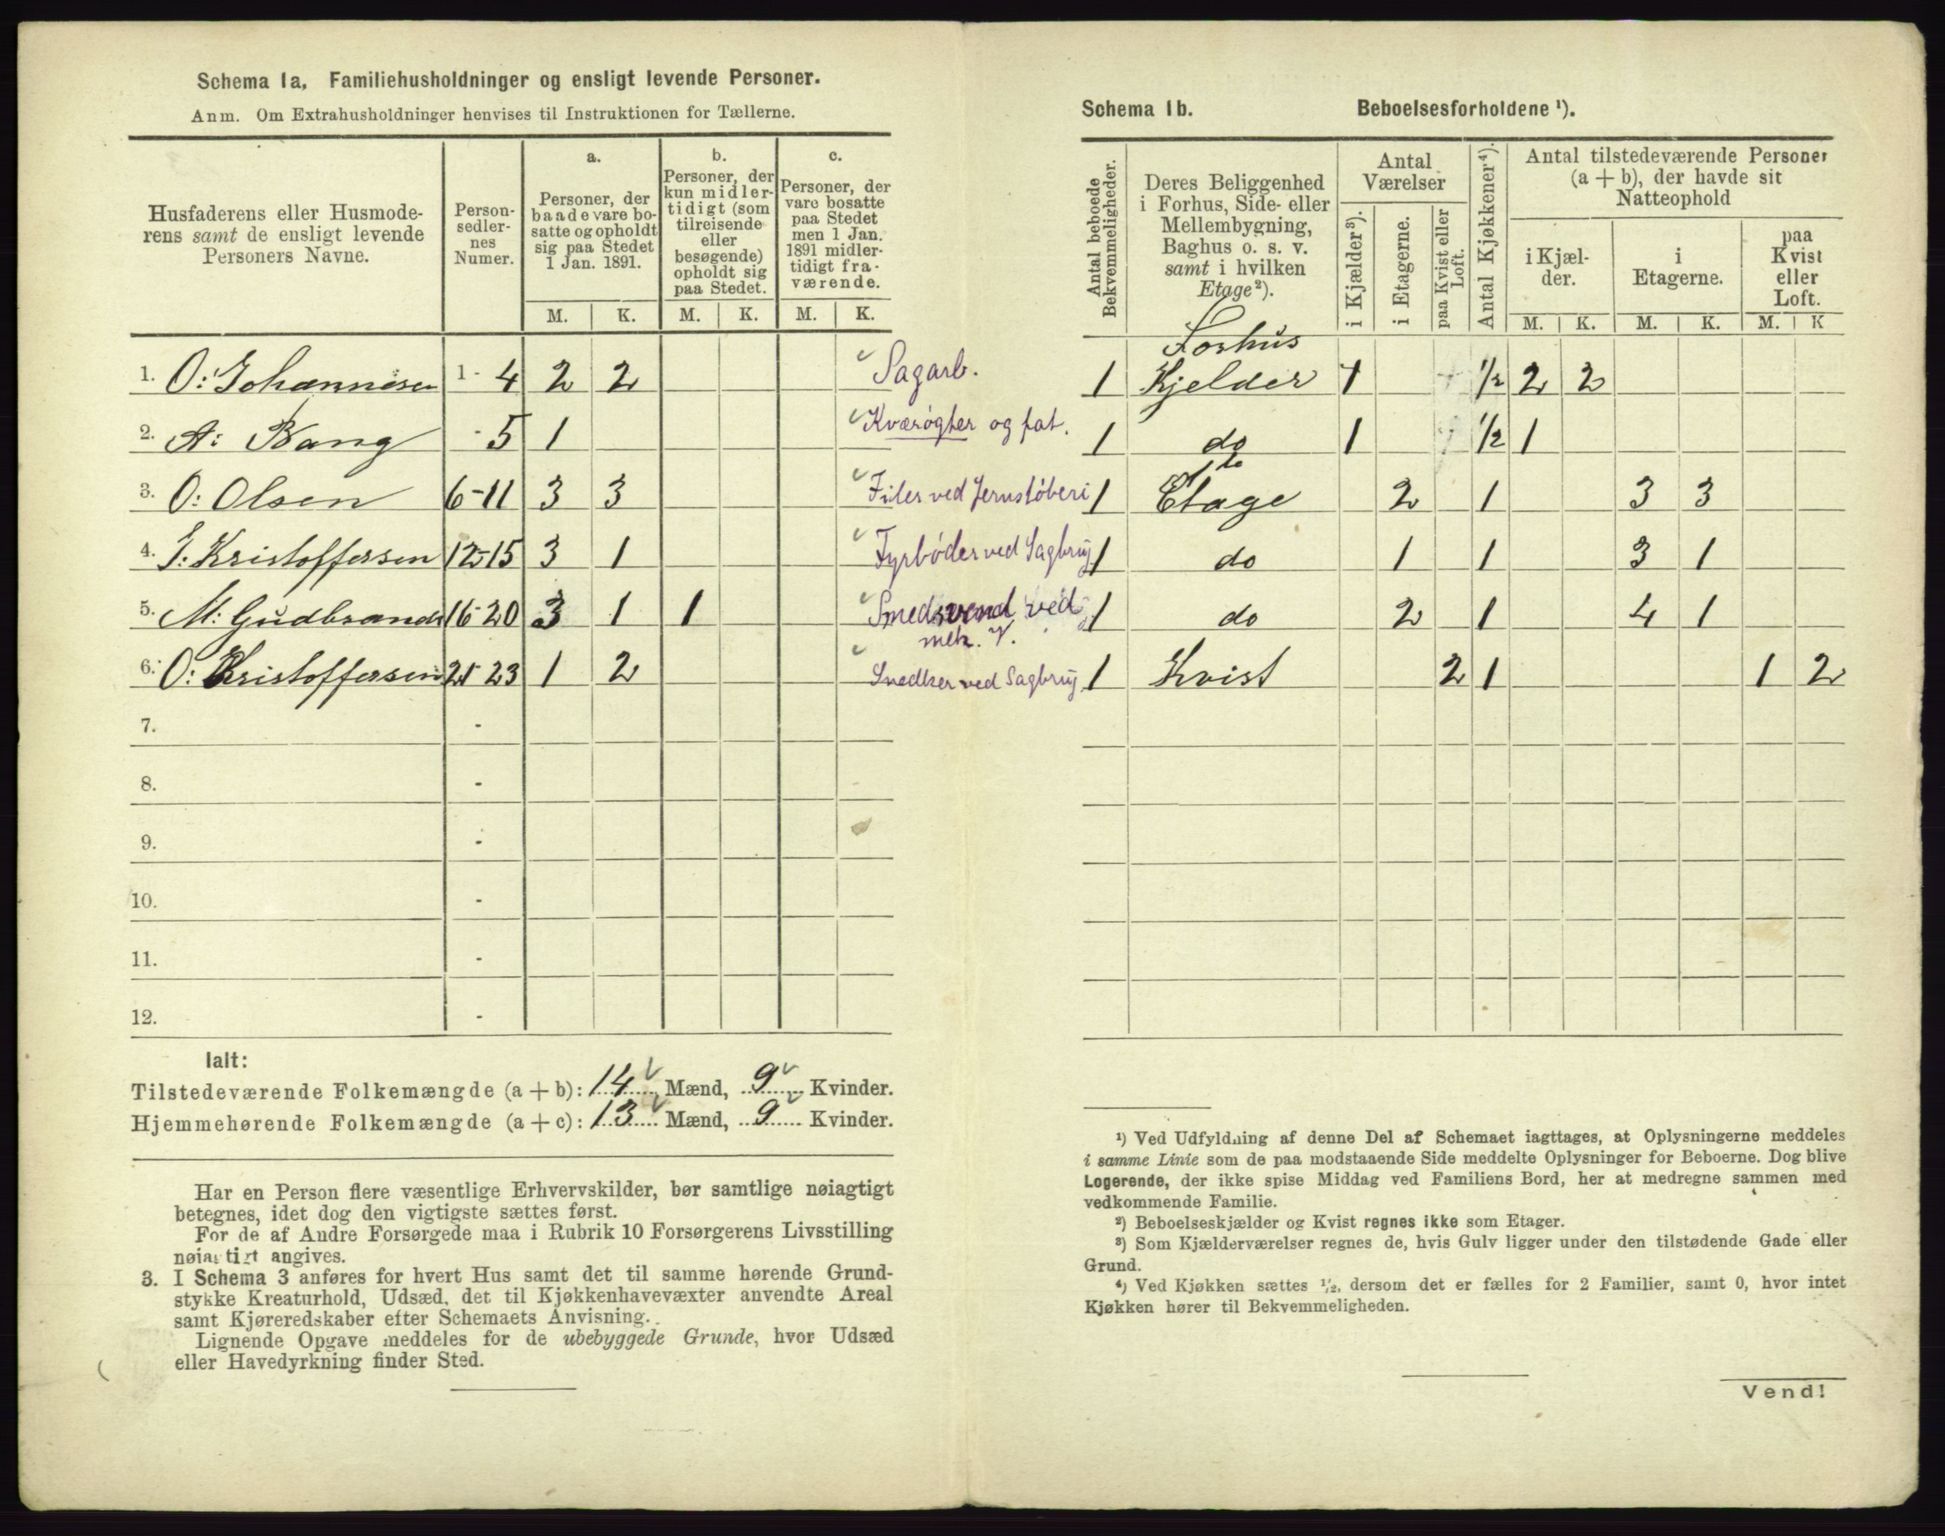 Schema 1a. Familiehusholdninger og ensligt levende Personer.
Anm. Om Extrahusholdninger henvises til Instruktionen for Tællerne.
Husfaderens eller Husmode-
rens samt de ensligt levende
Personers Navne.
Person-
sedler-
nes
Numer.
a.
Personer, der
baade vare bo-
satte og opholdt
sig paa Stedet
1 Jan. 1891.
b.
Personer, der
kun midler-
tidigt (som
tilreisende
eller
besøgende)
opholdt sig
paa Stedet.
c.
Personer, der
vare bosatte
paa Stedet
men 1 Jan.
1891 midler-
tidigt fra-
værende.
M. K. M. K. M. K.
1. O: Johannesen 1 - 4 2 2 Sagarb.
2. A: Bang - 5 1 Kværøgter og fat.
3. O: Olsen 6-11 3 3 Filer ved Jernstøberi
4. J: Kristoffersen 12-15 3 1 Fyrbøder ved Sagbrug
5. M: Gudbrands 16-20 3 1 1 Smedsvend ved
mek. V.
6. O: Kristoffersen 21-23 1 2 Snedker ved Sagbrug
7. -
8. -
9. -
10. -
11. -
12. -
Ialt:
Tilstedeværende Folkemængde (a + b): 14 Mænd, 9 Kvinder.
Hjemmehørende Folkemængde (a + c): 13 Mænd, 9 Kvinder.
Har en Person flere væsentlige Erhvervskilder, bør samtlige nøiagtigt
betegnes, idet dog den vigtigste sættes først.
For de af Andre Forsørgede maa i Rubrik 10 Forsørgerens Livsstilling
nøiagtigt angives.
3. I Schema 3 anføres for hvert Hus samt det til samme hørende Grund-
stykke Kreaturhold, Udsæd, det til Kjøkkenhavevæxter anvendte Areal
samt Kjøreredskaber efter Schemaets Anvisning.
Lignende Opgave meddeles for de ubebyggede Grunde, hvor Udsæd
eller Havedyrkning finder Sted.
Schema 1b. Beboelsesforholdene ¹).
Antal beboede
Bekvemmeligheder.
Deres Beliggenhed
i Forhus, Side- eller
Mellembygning,
Baghus o. s. v.
samt i hvilken
Etage²).
Antal
Værelser
i Kjælder³).
i Etagerne.
paa Kvist eller
Loft.
Antal Kjøkkener⁴).
Antal tilstedeværende Personer
(a + b), der havde sit
Natteophold
i Kjæl-
der.
i
Etagerne.
paa
Kvist
eller
Loft.
M. K. M. K. M. K
Forhus
1 Kjelder 1 1/2 2 2
1 do 1 1/2 1
do
1 Etage 2 1 3 3
1 do 1 1 3 1
1 do 2 1 4 1
1 Kvist 2 1 1 2
¹) Ved Udfyldning af denne Del af Schemaet iagttages, at Oplysningerne meddeles
i samme Linie som de paa modstaaende Side meddelte Oplysninger for Beboerne. Dog blive
Logerende, der ikke spise Middag ved Familiens Bord, her at medregne sammen med
vedkommende Familie.
²) Beboelseskjælder og Kvist regnes ikke som Etager.
³) Som Kjælderværelser regnes de, hvis Gulv ligger under den tilstødende Gade eller
Grund.
⁴) Ved Kjøkken sættes 1/2, dersom det er fælles for 2 Familier, samt 0, hvor intet
Kjøkken hører til Bekvemmeligheden.
Vend!